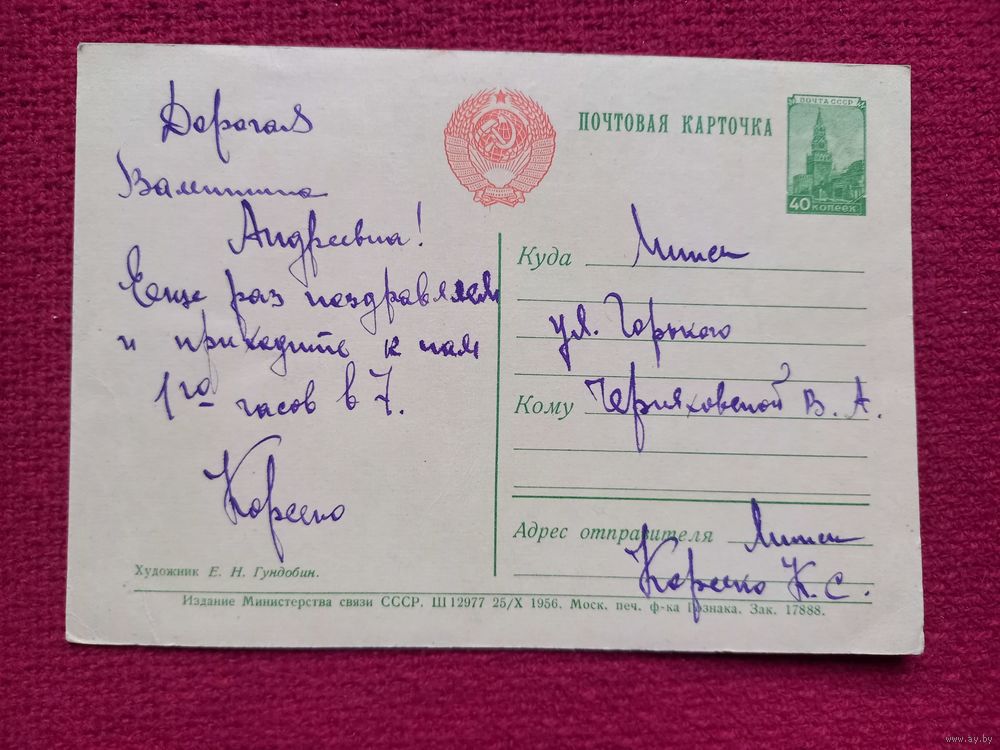 Дорогая
Валентина
Андреевна!
Еще раз поздравляем
и приходите к нам
1го часов в 7.
ПОЧТОВАЯ КАРТОЧКА
ПОЧТА СССР
40 КОПЕЕК
Куда Минск
ул. Горького
Кому Черняховской В. А.
Адрес отправителя Минск
К. С.
Художник Е. Н. Гундобин.
Издание Министерства связи СССР. Ш 12977 25/X 1956. Моск. печ. ф-ка Гознака. Зак. 17888.
www.ay.by